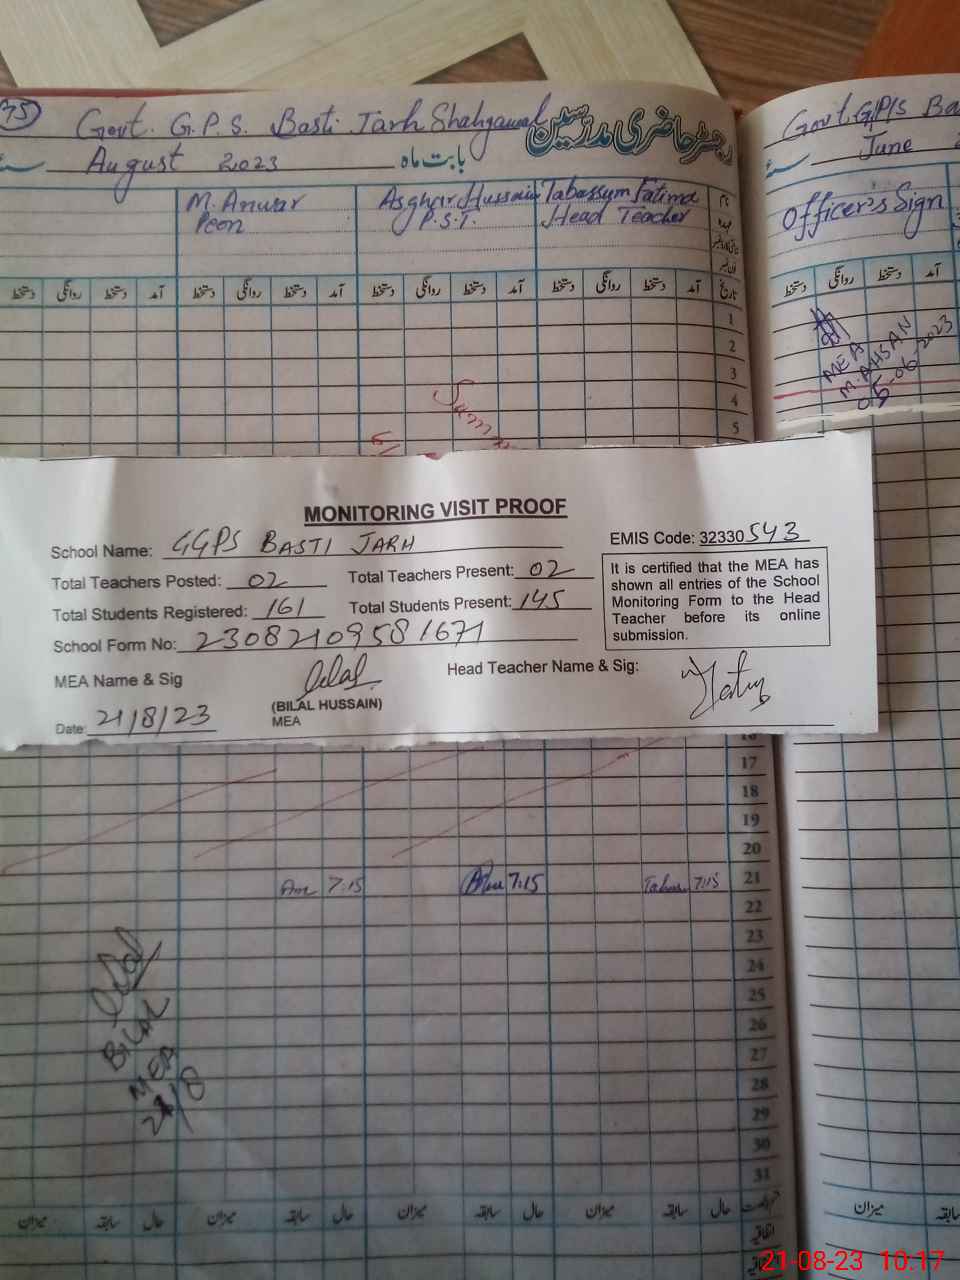 75
Govt. G.P.S. Basti Jarh Shahgawal
رجسٹر حاضری مدرسین
August 2023 بابت ماہ
M. Anwar
Peon
Asghar Hussain
P.S.T.
Tabassum Fatima
Head Teacher
نام
عہدہ
دستخط روانگی دستخط آمد دستخط روانگی دستخط آمد دستخط روانگی دستخط آمد تاریخ
1
2
3
4
5
Govt. G.P.S Ba
June
Officer's Sign
دستخط روانگی دستخط آمد
MEA
M. AHSAN
05-06-2023
MONITORING VISIT PROOF
School Name: GGPS BASTI JARH
EMIS Code: 32330543
Total Teachers Posted: 02 Total Teachers Present: 02
Total Students Registered: 161 Total Students Present: 145
School Form No: 23082109581671
It is certified that the MEA has
shown all entries of the School
Monitoring Form to the Head
Teacher before its online
submission.
MEA Name & Sig Bilal
Head Teacher Name & Sig:
(BILAL HUSSAIN)
MEA
Date: 21/8/23
16
17
18
19
20
7:15 7:15 7:15 21
22
23
24
25
26
27
28
29
30
31
BILAL
MEA
21/8
میزان سابقہ حال میزان سابقہ حال میزان سابقہ حال میزان سابقہ حال
اتفاقیہ
میزان سابقہ
21-08-23 10:17